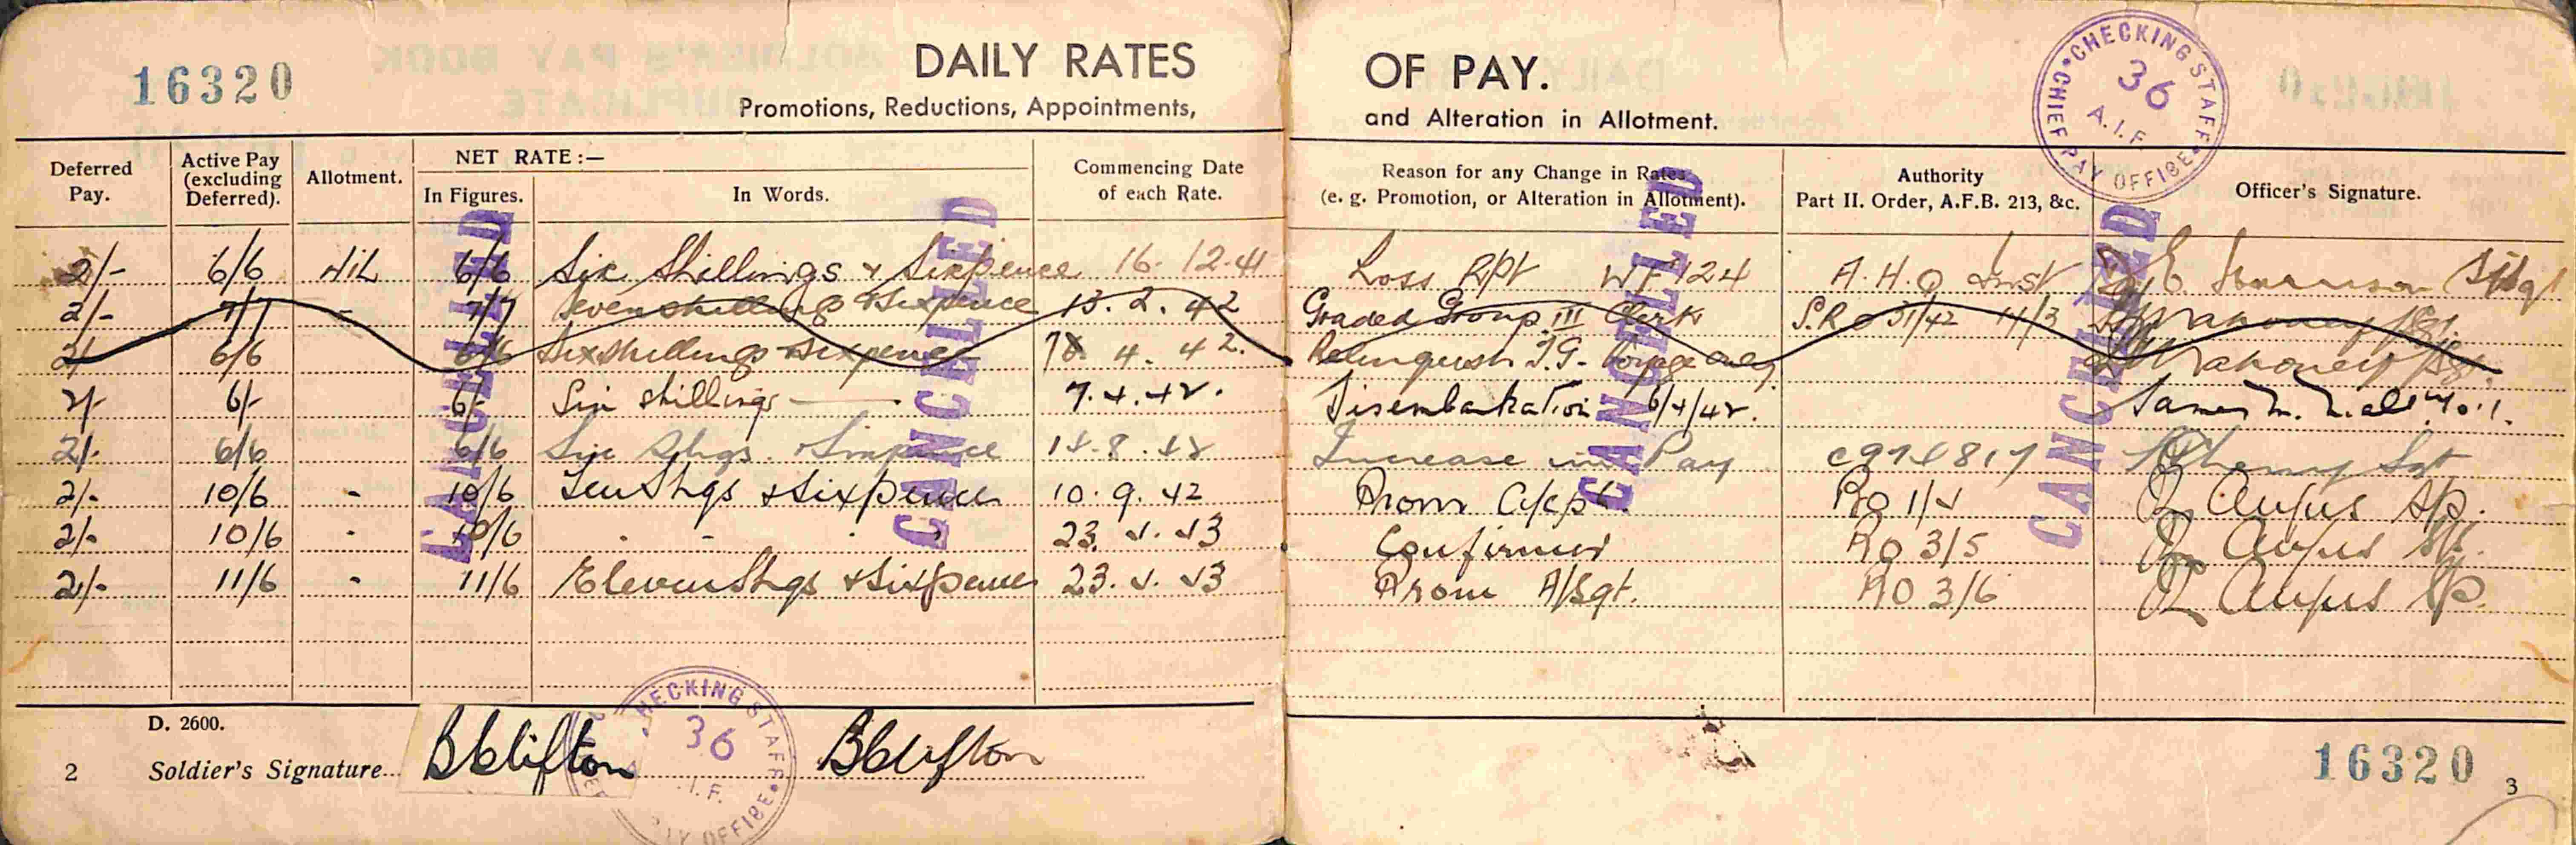 16320
DAILY RATES OF PAY.
Promotions, Reductions, Appointments, and Alteration in Allotment.
CHECKING STAFF
36
A.I.F.
CHIEF PAY OFFISE
Deferred Pay. Active Pay (excluding Deferred). Allotment. NET RATE :— In Figures. In Words. Commencing Date of each Rate. Reason for any Change in Rates (e. g. Promotion, or Alteration in Allotment). Authority Part II. Order, A.F.B. 213, &c. Officer's Signature.
2/- 6/6 Nil 6/6 Six Shillings & Sixpence 16. 12.41 Loss Rpt 124 A.H.Q
2/- 7/7 - 7/7 Seven shillings & Sixpence 13. 2. 42 Graded Group III Clerk S.R.O 31/42 11/3 Mahoney
2/ 6/6 6/6 Six shillings Sixpence 18. 4. 42. Relinquish Voyage only Mahoney
2/- 6/- 6/- Six shillings 7.4.42. Disembarkation 6/4/42.
2/- 6/6 6/6 Six Shgs. & Sixpence 14.8.42 Increase in Pay Sgt
2/- 10/6 - 10/6 Ten Shgs & Sixpence 10. 9. 42 Prom RO 1/4
2/- 10/6 - 10/6 23. Confirmed RO 3/5
2/- 11/6 - 11/6 Eleven Shgs & Sixpence 23. Prom A/Sgt. RO 3/6
CANCELLED
CANCELLED
CANCELLED
CANCELLED
D. 2600.
2 Soldier's Signature... B Clifton B Clifton
HECKING STAFF
36
.I.F.
AY OFFISE
16320
3